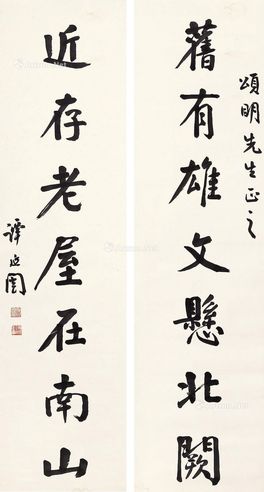 頌明先生正之
舊有雄文懸北闕
近存老屋在南山
譚延闓